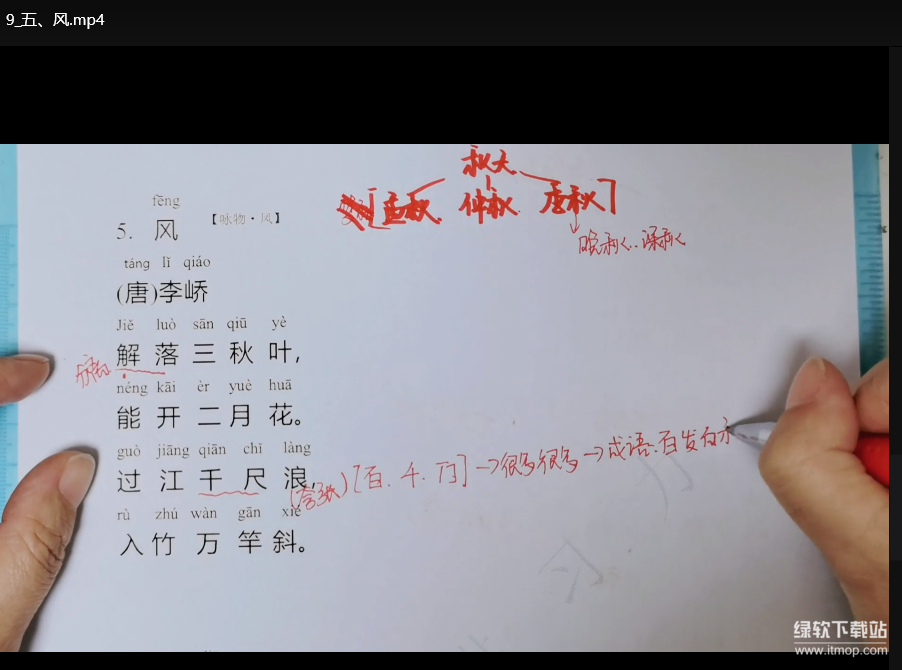 9_五、风.mp4
秋天
孟秋 仲秋 季秋
晚秋 深秋
fēng
5. 风 【咏物·风】
táng lǐ qiáo
(唐)李峤
Jiě luò sān qiū yè
解落三秋叶,
néng kāi èr yuè huā
能开二月花。
guò jiāng qiān chǐ làng
过江千尺浪,
(夸张)[百.千.万]→很多很多→成语:百发百
rù zhú wàn gān xié
入竹万竿斜。
绿软下载站
www.itmop.com